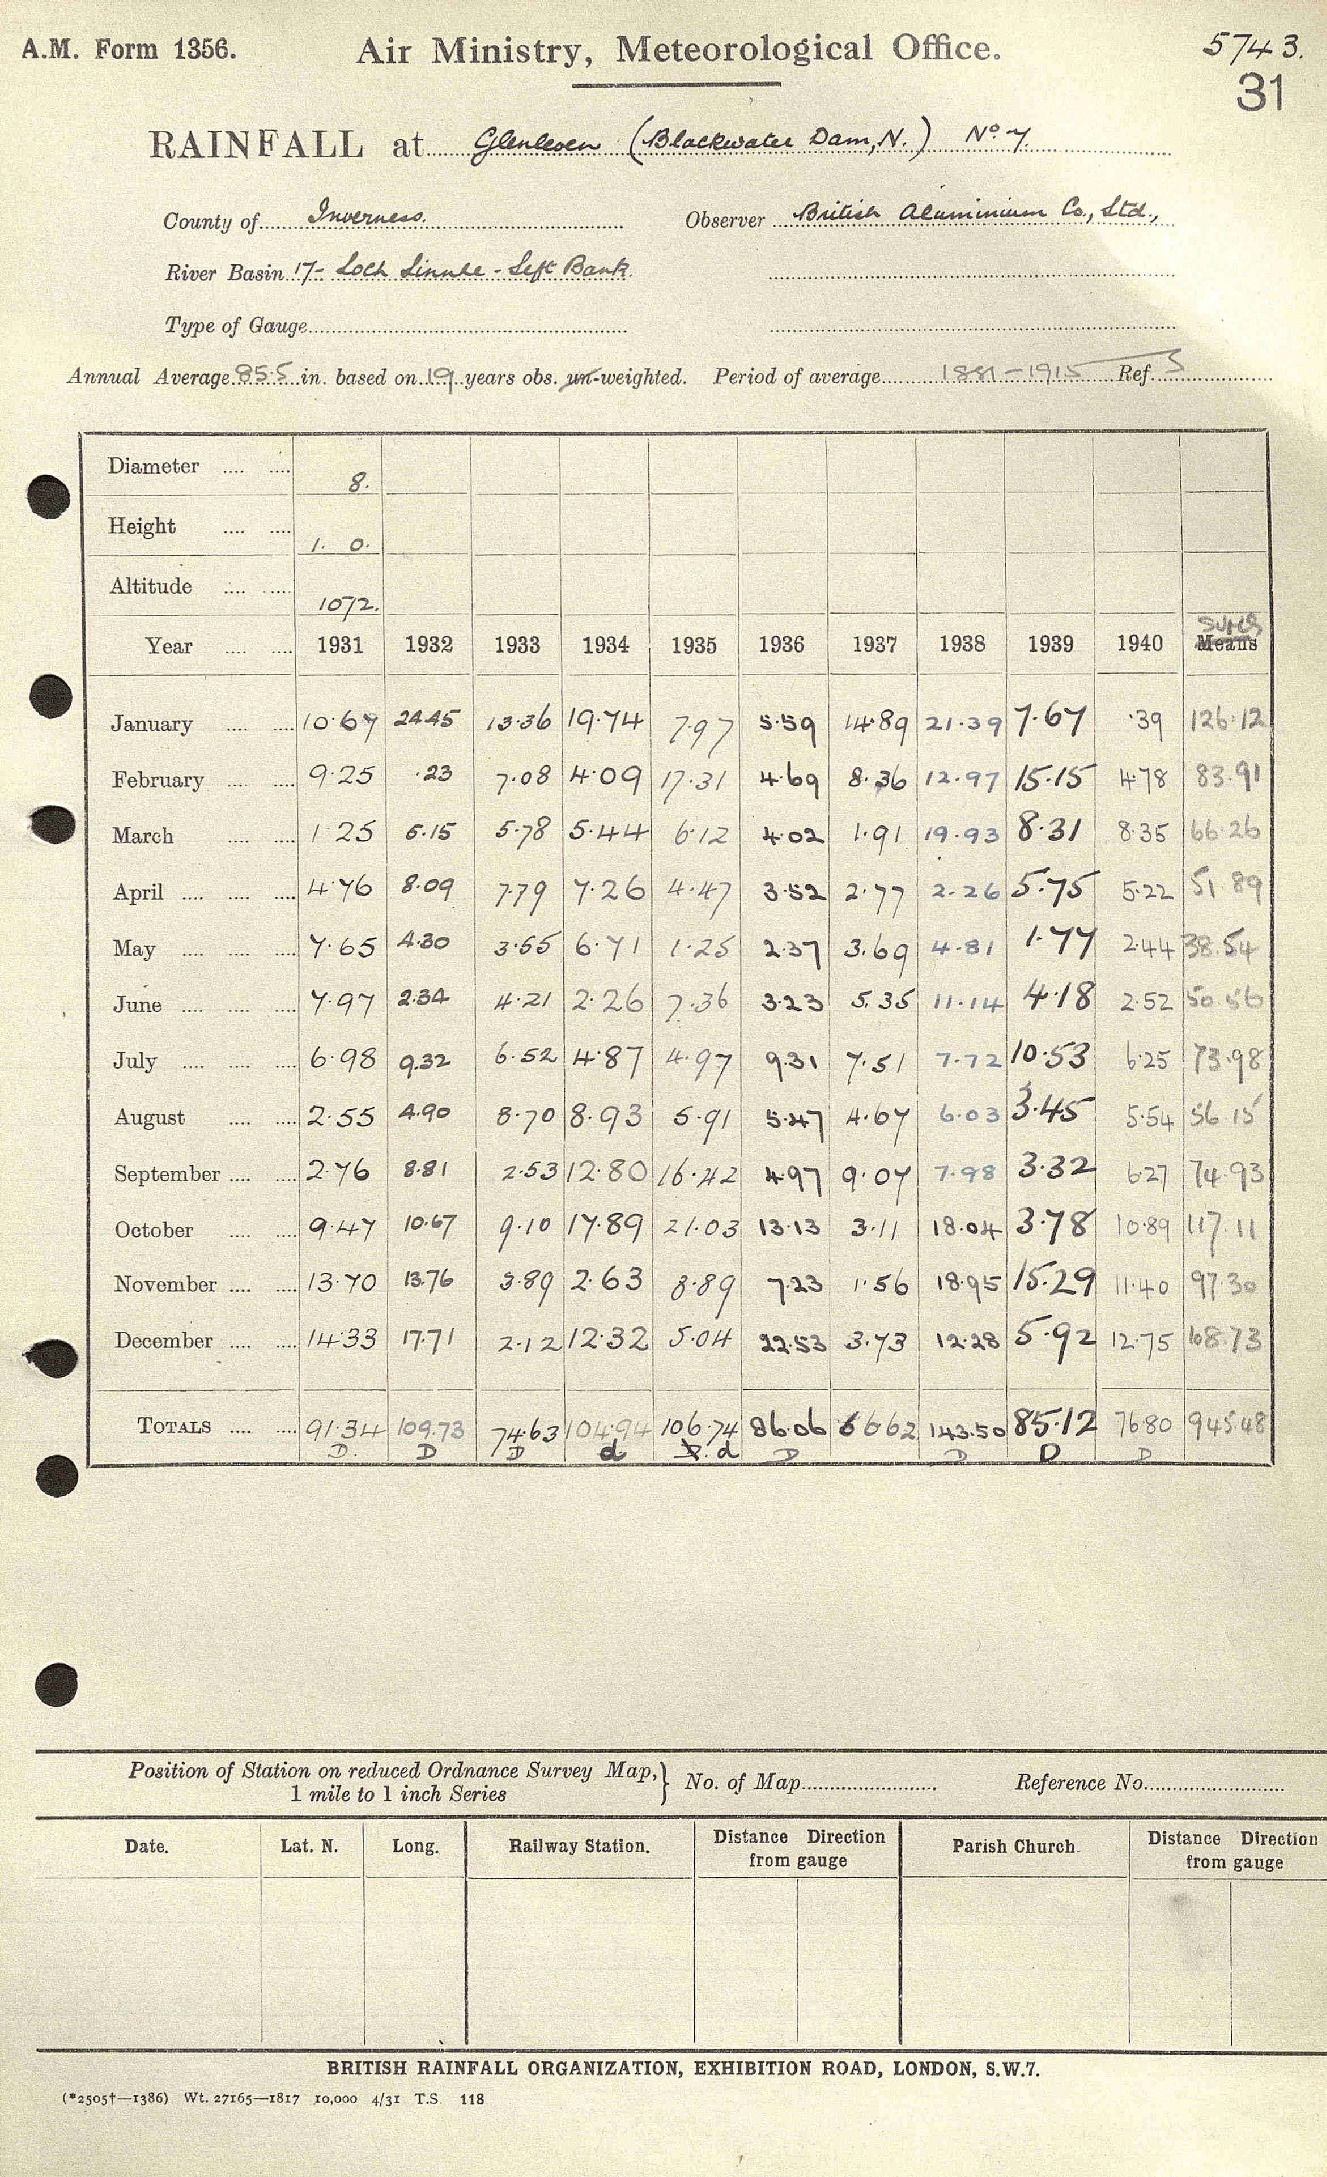 A.M. Form 1356. Air Ministry, Meteorological Office. 5743.
31
RAINFALL at Glenleven (Blackwater Dam, N.) No 7.
County of Inverness. Observer British Aluminium Co., Ltd.,
River Basin 17- Loch Linnhe - Left Bank
Type of Gauge
Annual Average 85.5 in. based on 19 years obs. un-weighted. Period of average 1881-1915 Ref. 5
Diameter 8.
Height 1. 0.
Altitude 1072.
Sums
Year 1931 1932 1933 1934 1935 1936 1937 1938 1939 1940 Means
January 10.67 24.45 13.36 19.74 7.97 5.59 14.89 21.39 7.67 .39 126.12
February 9.25 .23 7.08 4.09 17.31 4.69 8.36 12.97 15.15 4.78 83.91
March 1.25 5.15 5.78 5.44 6.12 4.02 1.91 19.93 8.31 8.35 66.26
April 4.76 8.09 7.79 7.26 4.47 3.52 2.77 2.26 5.75 5.22 51.89
May 7.65 4.30 3.55 6.71 1.25 2.37 3.69 4.81 1.77 2.44 38.54
June 7.97 2.34 4.21 2.26 7.36 3.23 5.35 11.14 4.18 2.52 50.56
July 6.98 9.32 6.52 4.87 4.97 9.31 7.51 7.72 10.53 6.25 73.98
August 2.55 4.90 8.70 8.93 5.91 5.47 4.67 6.03 3.45 5.54 56.15
September 2.76 8.81 2.53 12.80 16.42 4.97 9.07 7.98 3.32 6.27 74.93
October 9.47 10.67 9.10 17.89 21.03 13.13 3.11 18.04 3.78 10.89 117.11
November 13.70 13.76 3.89 2.63 8.89 7.23 1.56 18.95 15.29 11.40 97.30
December 14.33 17.71 2.12 12.32 5.04 22.53 3.73 12.28 5.92 12.75 108.73
TOTALS 91.34 109.73 74.63 104.94 106.74 86.06 66.62 143.50 85.12 76.80 945.48
D. D D d D. d D D D D
Position of Station on reduced Ordnance Survey Map, 1 mile to 1 inch Series } No. of Map Reference No.
Date. Lat. N. Long. Railway Station. Distance Direction from gauge Parish Church Distance Direction from gauge
BRITISH RAINFALL ORGANIZATION, EXHIBITION ROAD, LONDON, S.W.7.
(*2505†—1386) Wt. 27165—1817 10,000 4/31 T.S. 118